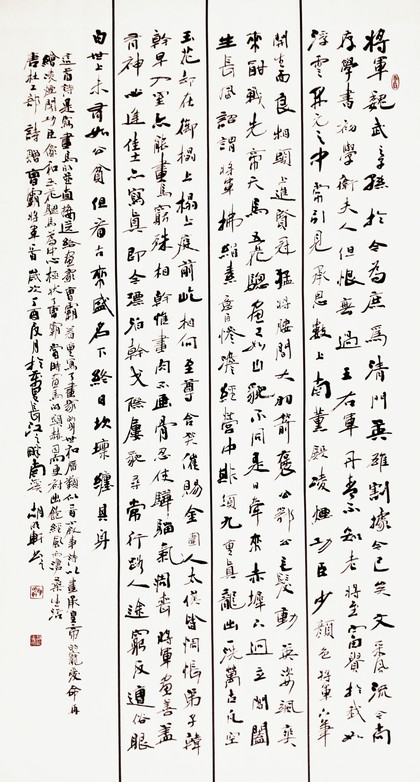 將軍魏武之子孫於今為庶為清門英雄割據今已矣文采風流今尚
存學書初學衛夫人但恨無過王右軍丹青不知老將至富貴於我如
浮雲開元之中常引見承恩數上南薰殿凌煙功臣少顏色將軍下筆
開生面良相頭上進賢冠猛將腰間大羽箭褒公鄂公毛髮動英姿颯爽
來酣戰先帝天馬五花驄畫工如山貌不同是日牽來赤墀下迥立閶闔
生長風詔謂將軍拂絹素意匠慘澹經營中斯須九重真龍出一洗萬古凡空
玉花却在御榻上榻上庭前屹相向至尊含笑催賜金圉人太僕皆惆悵弟子韓
幹早入室亦能畫馬窮殊相幹惟畫肉不畫骨忍使驊騮氣凋喪將軍畫善蓋
有神必逢佳士亦寫真即今漂泊幹戈際屢貌尋常行路人途窮反遭俗眼
白世上未有如公貧但看古來盛名下終日坎壈纏其身
這首詩是寫畫馬的 送給畫家曹霸 畫承皇帝的寵愛命再
繪凌煙閣功臣像和玉花驄馬
唐杜工部詩贈曹霸將軍 歲次丁酉 月於 長江之畔南溪